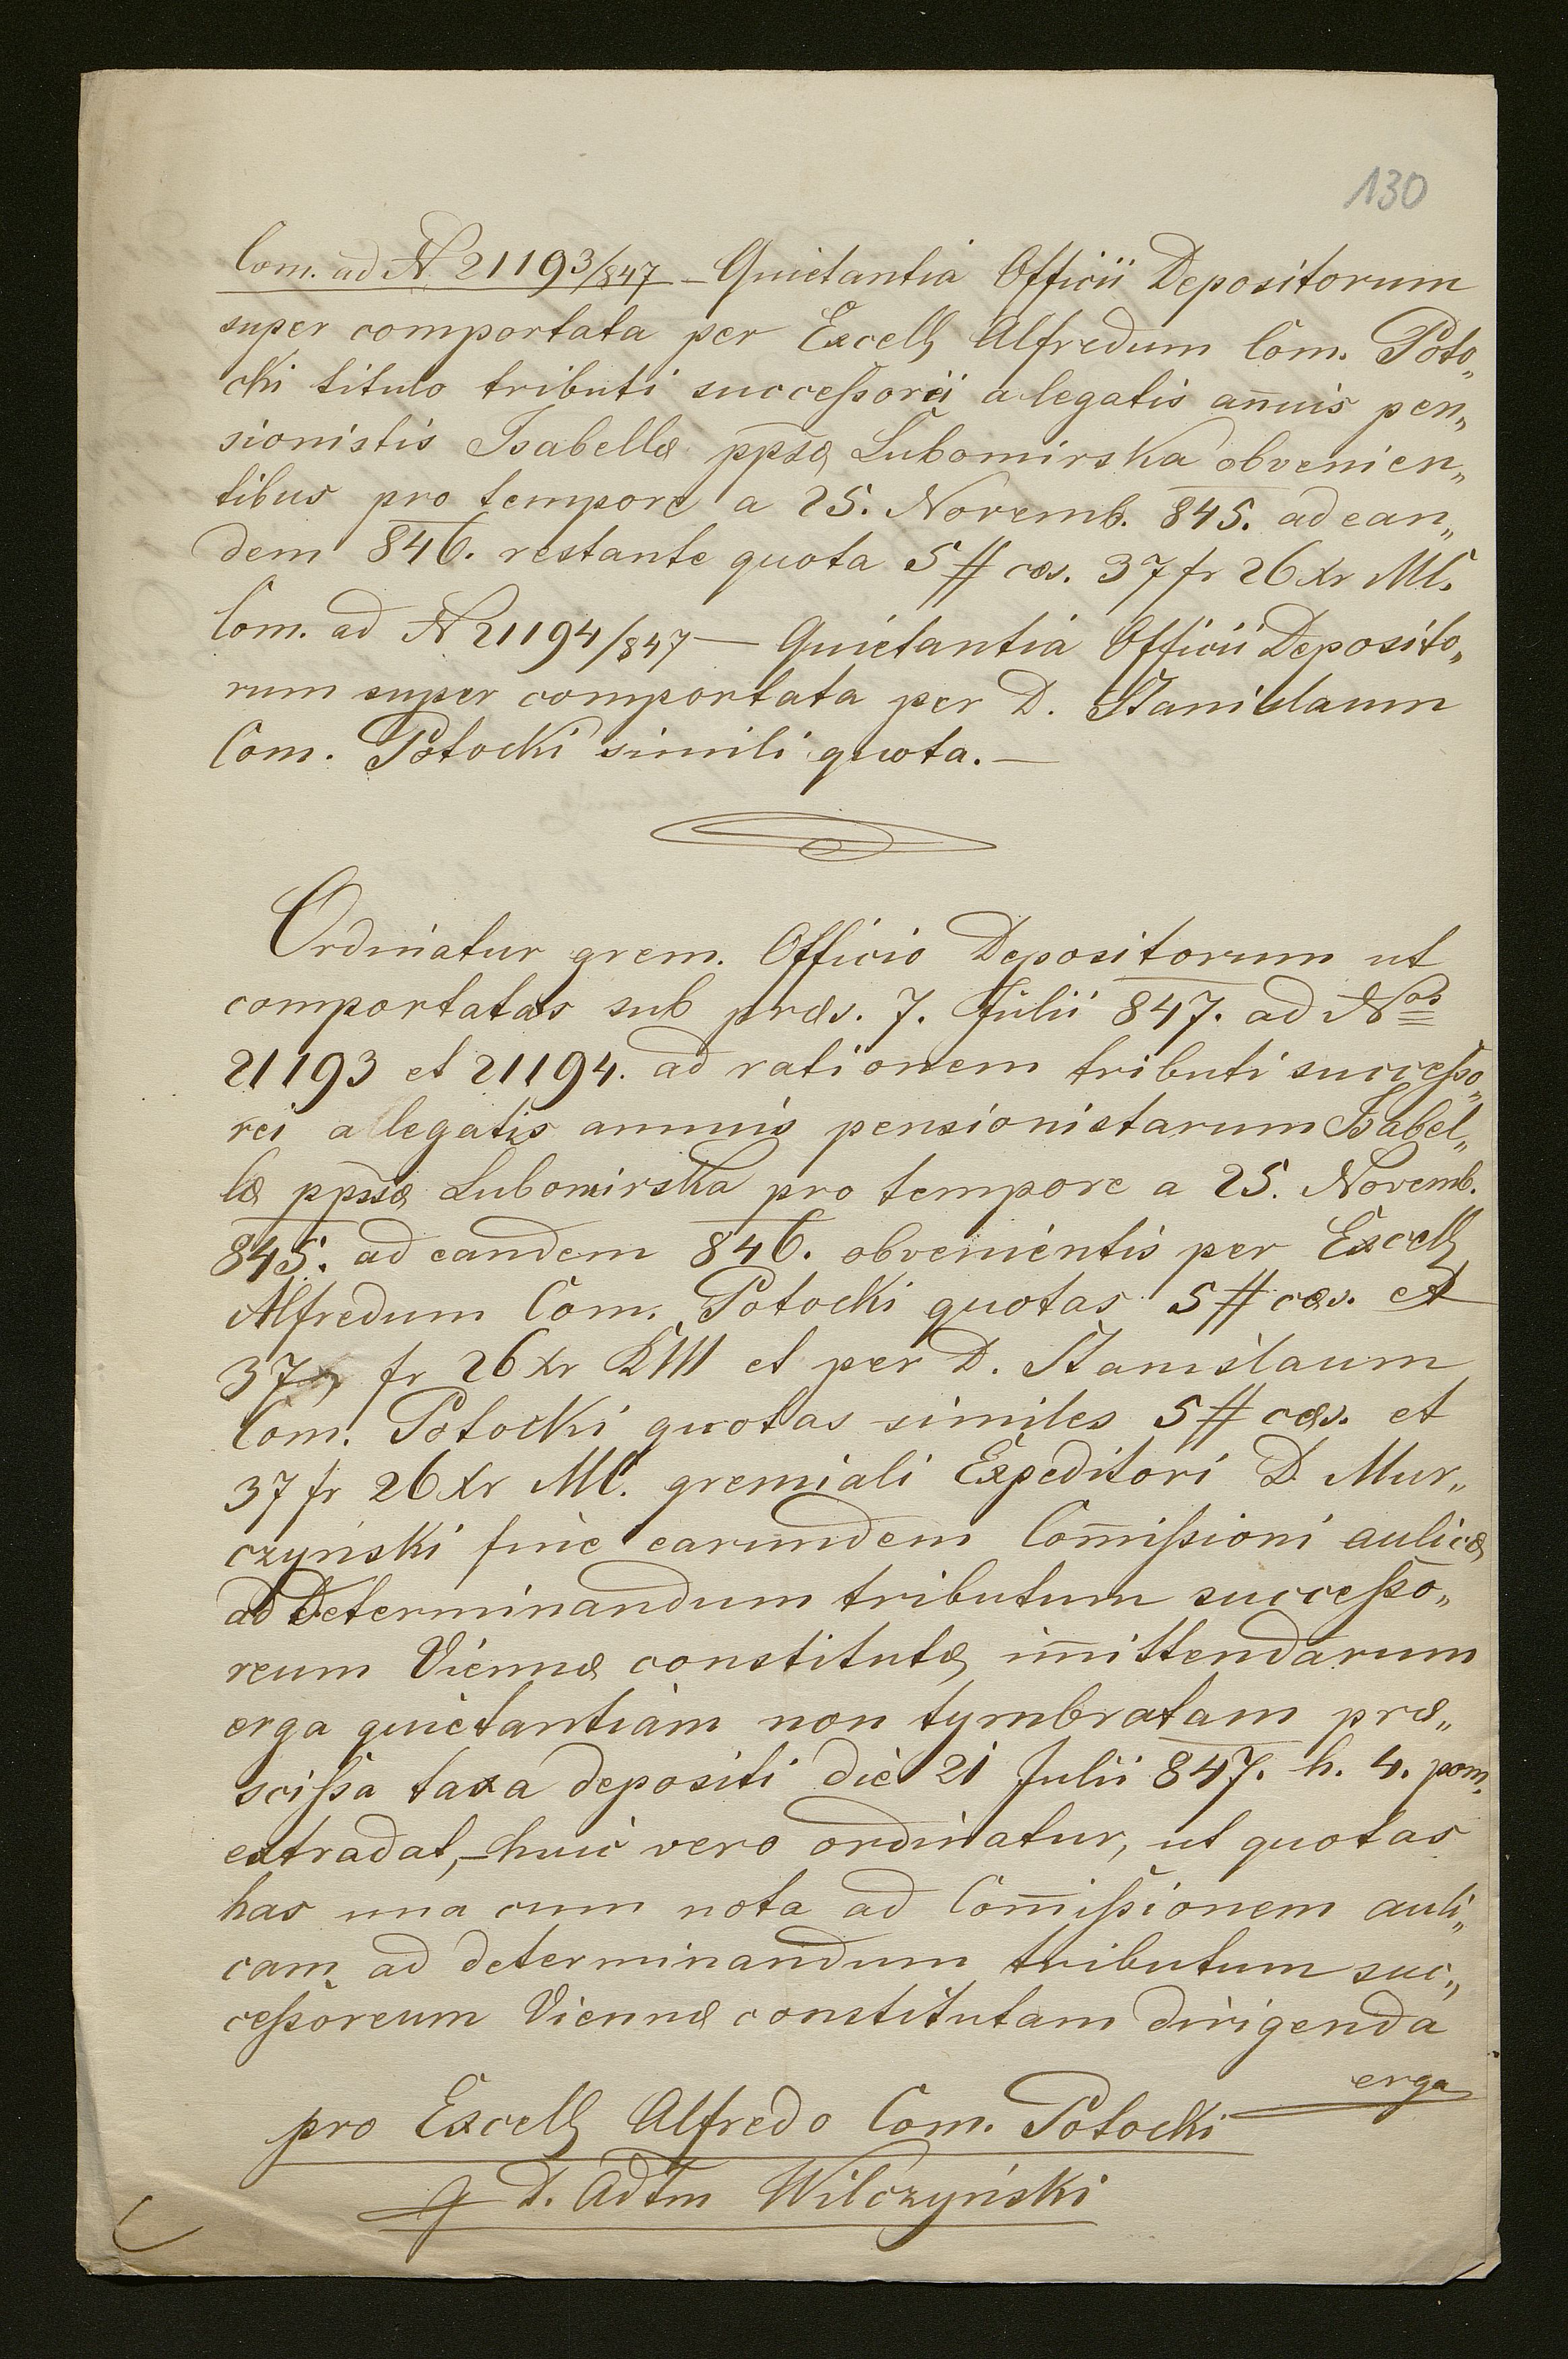 130
Com. ad N. 21193/847 – Quietantia Officii Depositorum
super comportata per Excell Alfredum Com. Poto„
cki titulo tributi succeſsorii a legatis an̄uis pen„
sionistis Isabellæ ppsæ Lubomirska obvenien„
tibus pro tempore a 25. Novemb. 845. ad ean„
dem 846. restante quota 5 # cæs. 37 fr 26 xr MC.
Com. ad N 21194/847 — Quietantia Officii Deposito„
rum super comportata per D. Stanislaum
Com. Potocki simili quota. —
Ordinatur grem. Officio Depositorum ut
comportatas sub præs. 7. Julii 847. ad Nos
21193 et 21194. ad rationem tributi succeſso„
rei a legatis annuis pensionistarum Isabel„
læ ppssæ Lubomirska pro tempore a 25. Novemb.
845. ad eandem 846. obvenientis per Excell
Alfredum Com. Potocki quotas 5 # cæs. et
37 fr 26 xr et per D. Stanislaum
Com. Potocki quotas similes 5 # cæs. et
37 fr 26 xr MC. gremiali Expeditori D. Mur„
czyński fine earundem Com̄iſsioni aulicæ
ad determinandum tributum succeſso„
reum Viennæ constitutæ im̄ittendarum
erga quietantiam non tymbratam præ„
sciſsa taxa depositi die 21 Julii 847. h. 4. pom.
extradat, – huic vero ordinatur, ut quotas
has una cum nota ad Com̄iſsionem auli„
cam ad determinandum tributum suc„
ceſsoreum Viennæ constitutam dirigenda
erga
pro Excell Alfredo Com. Potocki
D. Adtm Wilczyński